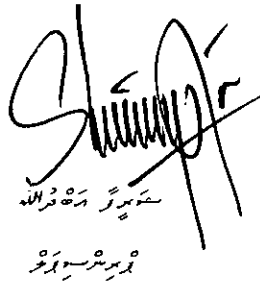 ޝަރީފާ އަބްދުﷲ
ޕްރިންސިޕަލް